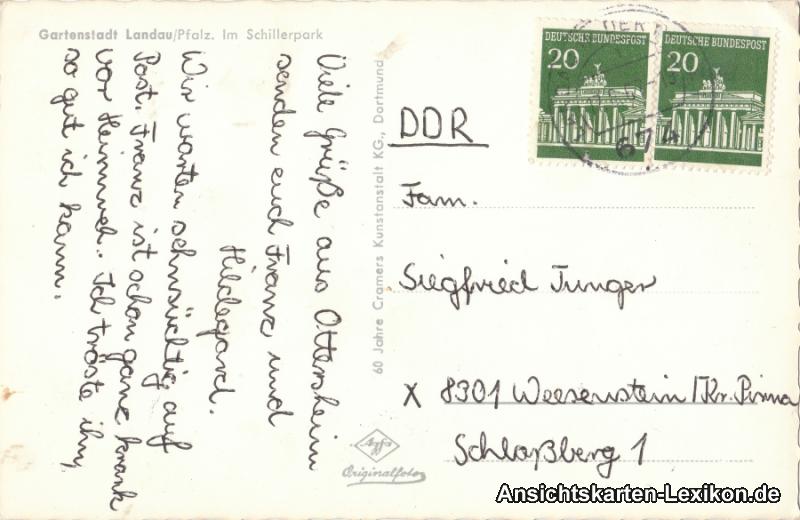 Gartenstadt Landau/Pfalz. Im Schillerpark
Viele Grüße aus Ottersheim
senden euch Franz und
Hildegard.
Wir warten sehnsüchtig auf
Post. Franz ist schon ganz krank
vor Heimweh. Ich tröste ihn,
so gut ich kann.
60 Jahre Cramers Kunstanstalt KG., Dortmund
Agfa
Originalfoto
DEUTSCHE BUNDESPOST
20
DEUTSCHE BUNDESPOST
20
674
DDR
Fam.
Siegfried Junger
x 8301 Weesenstein/Kr. Pirna
Schloßberg 1
Ansichtskarten-Lexikon.de